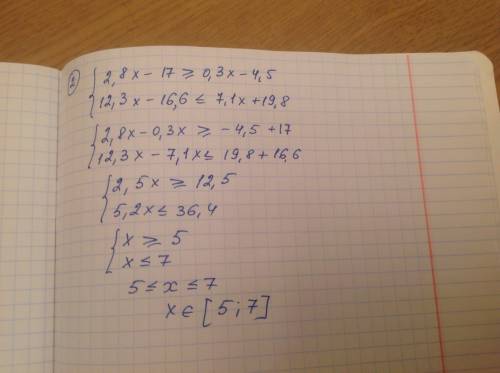 2 { 2,8x - 17 ≥ 0,3x - 4,5
12,3x - 16,6 ≤ 7,1x + 19,8
{ 2,8x - 0,3x ≥ - 4,5 + 17
12,3x - 7,1x ≤ 19,8 + 16,6
{ 2,5x ≥ 12,5
5,2x ≤ 36,4
{ x ≥ 5
x ≤ 7
5 ≤ x ≤ 7
x ∈ [5; 7]